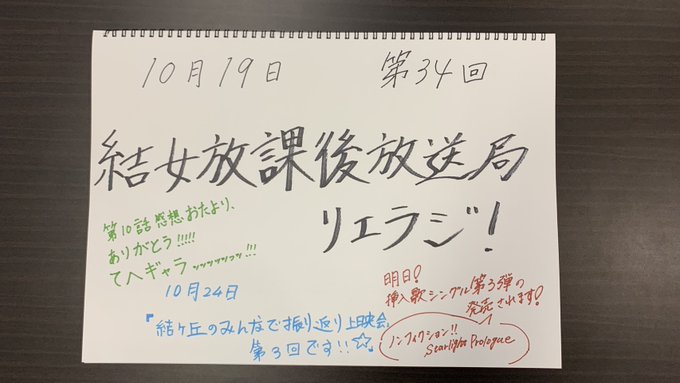 10月19日　第34回
結女放課後放送局
リエラジ!
第10話感想おたより、
ありがとう!!!!!
てへギャラッッッッッッッ!!!
10月24日
『結ヶ丘のみんなで振り返り上映会』
第3回です!!☆
明日!
挿入歌シングル第3弾の
発売されます!
ノンフィクション!!
Starlight Prologue